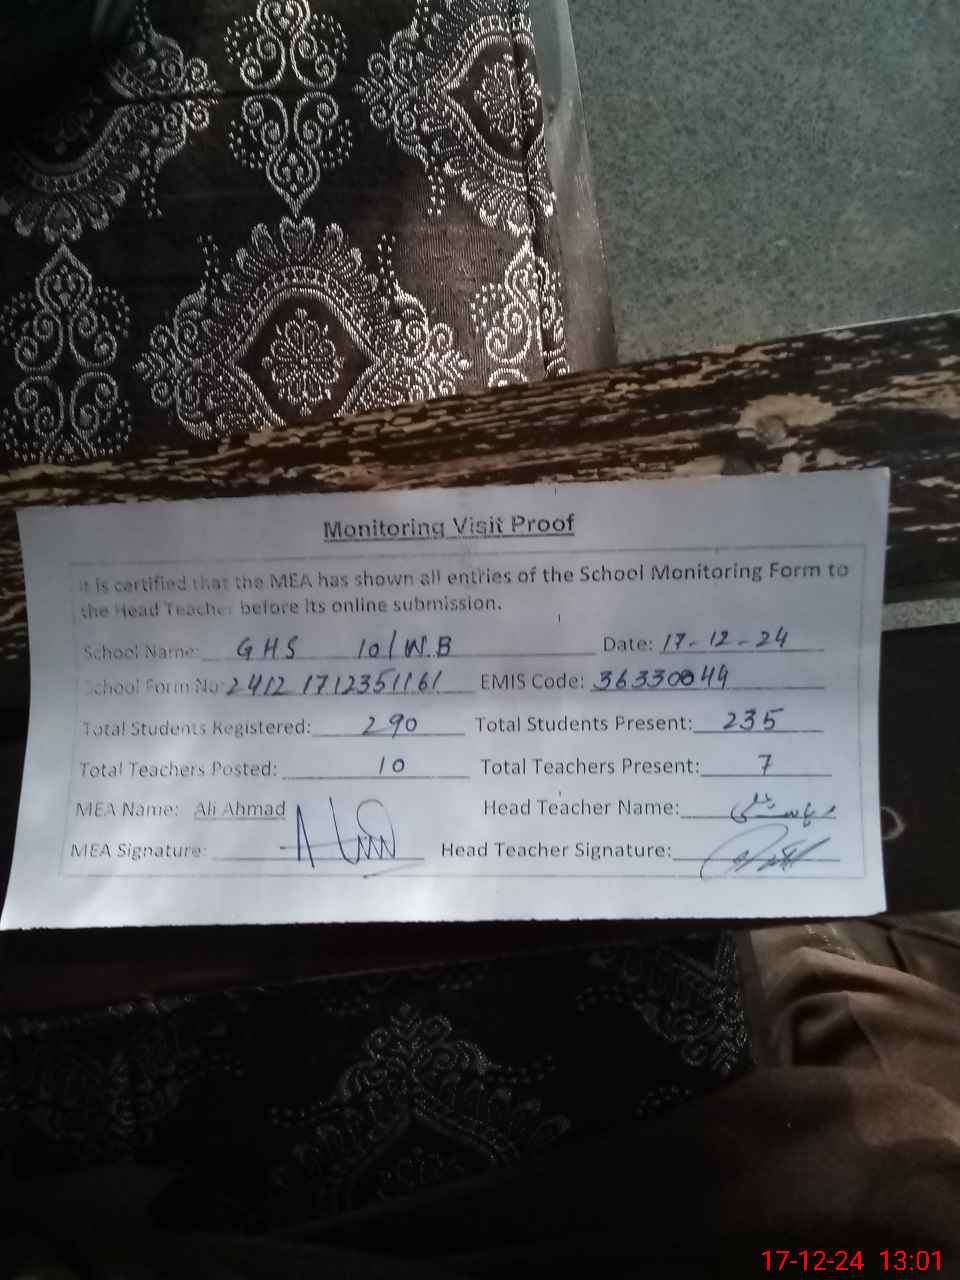 Monitoring Visit Proof
It is certified that the MEA has shown all entries of the School Monitoring Form to
the Head Teacher before its online submission.
School Name: GHS 10/W.B Date: 17-12-24
School Form No: 2412 1712351161 EMIS Code: 36330044
Total Students Registered: 290 Total Students Present: 235
Total Teachers Posted: 10 Total Teachers Present: 7
MEA Name: Ali Ahmad Head Teacher Name:
MEA Signature: Head Teacher Signature:
17-12-24 13:01